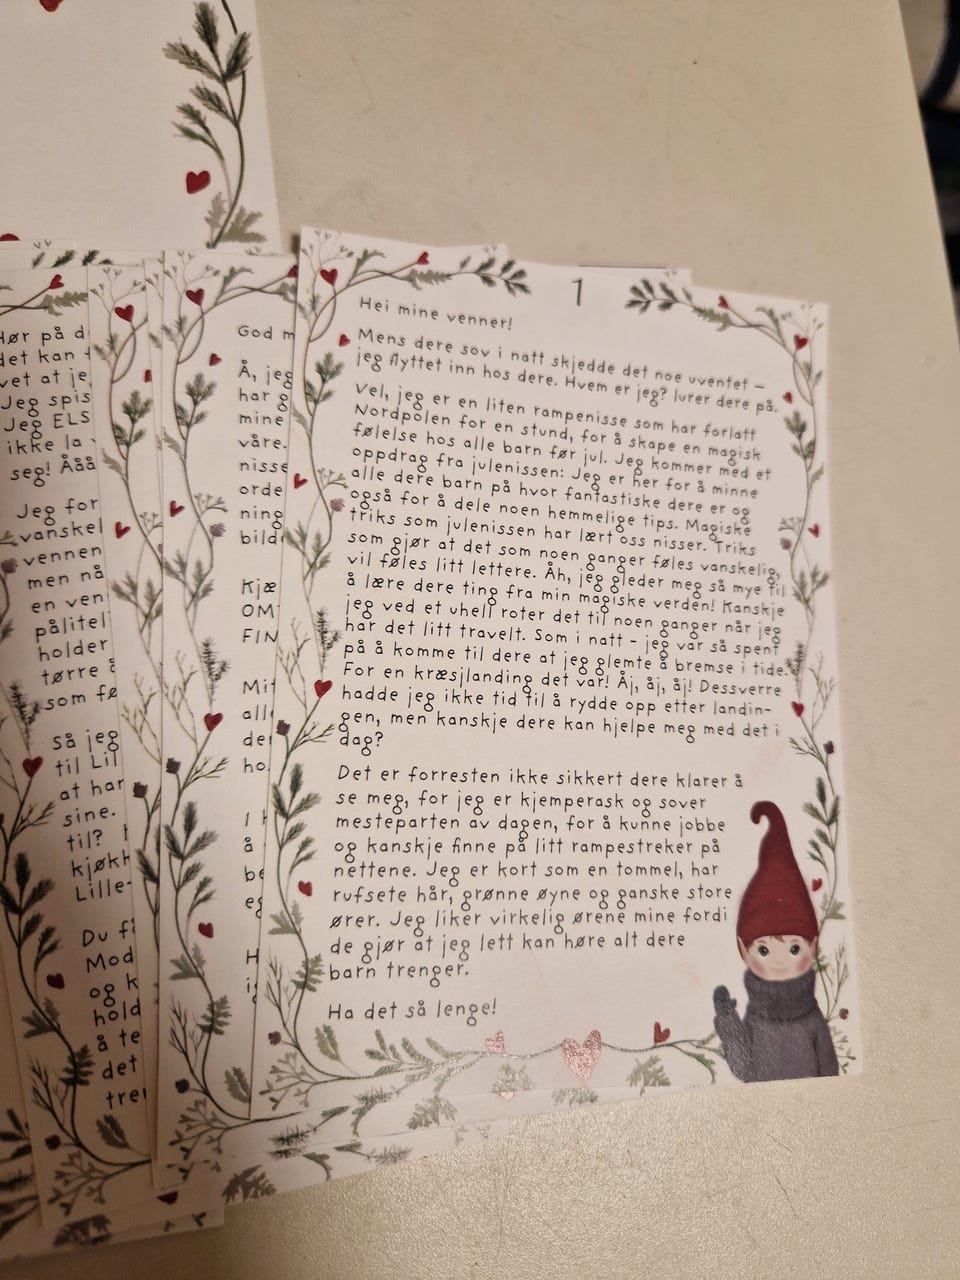 Hør på d
det kan
vet at je
Jeg spis
Jeg ELS
ikke la
seg! Ååå
Jeg for
vanskel
vennen
men nå
en ven
pålitel
holder
tørre
som fø
så jeg
til Lil
at har
sine.
til?
kjøkk
Lille-
Du f
Mod
og k
hold
å te
det
tre
God m
Å, jeg
har g
mine
våre.
nisse
orde
ning
bild
Kjæ
OM
FIN
Mit
all
de
ho
I
å
be
eg
H
i
1
Hei mine venner!
Mens dere sov i natt skjedde det noe uventet –
jeg flyttet inn hos dere. Hvem er jeg? lurer dere på.
Vel, jeg er en liten rampenisse som har forlatt
Nordpolen for en stund, for å skape en magisk
følelse hos alle barn før jul. Jeg kommer med et
oppdrag fra julenissen: Jeg er her for å minne
alle dere barn på hvor fantastiske dere er og
også for å dele noen hemmelige tips. Magiske
triks som julenissen har lært oss nisser. Triks
som gjør at det som noen ganger føles vanskelig,
vil føles litt lettere. Åh, jeg gleder meg så mye til
å lære dere ting fra min magiske verden! Kanskje
jeg ved et uhell roter det til noen ganger når jeg
har det litt travelt. Som i natt – jeg var så spent
på å komme til dere at jeg glemte å bremse i tide.
For en kræsjlanding det var! Åj, åj, åj! Dessverre
hadde jeg ikke tid til å rydde opp etter landin-
gen, men kanskje dere kan hjelpe meg med det i
dag?
Det er forresten ikke sikkert dere klarer å
se meg, for jeg er kjemperask og sover
mesteparten av dagen, for å kunne jobbe
og kanskje finne på litt rampestreker på
nettene. Jeg er kort som en tommel, har
rufsete hår, grønne øyne og ganske store
ører. Jeg liker virkelig ørene mine fordi
de gjør at jeg lett kan høre alt dere
barn trenger.
Ha det så lenge!